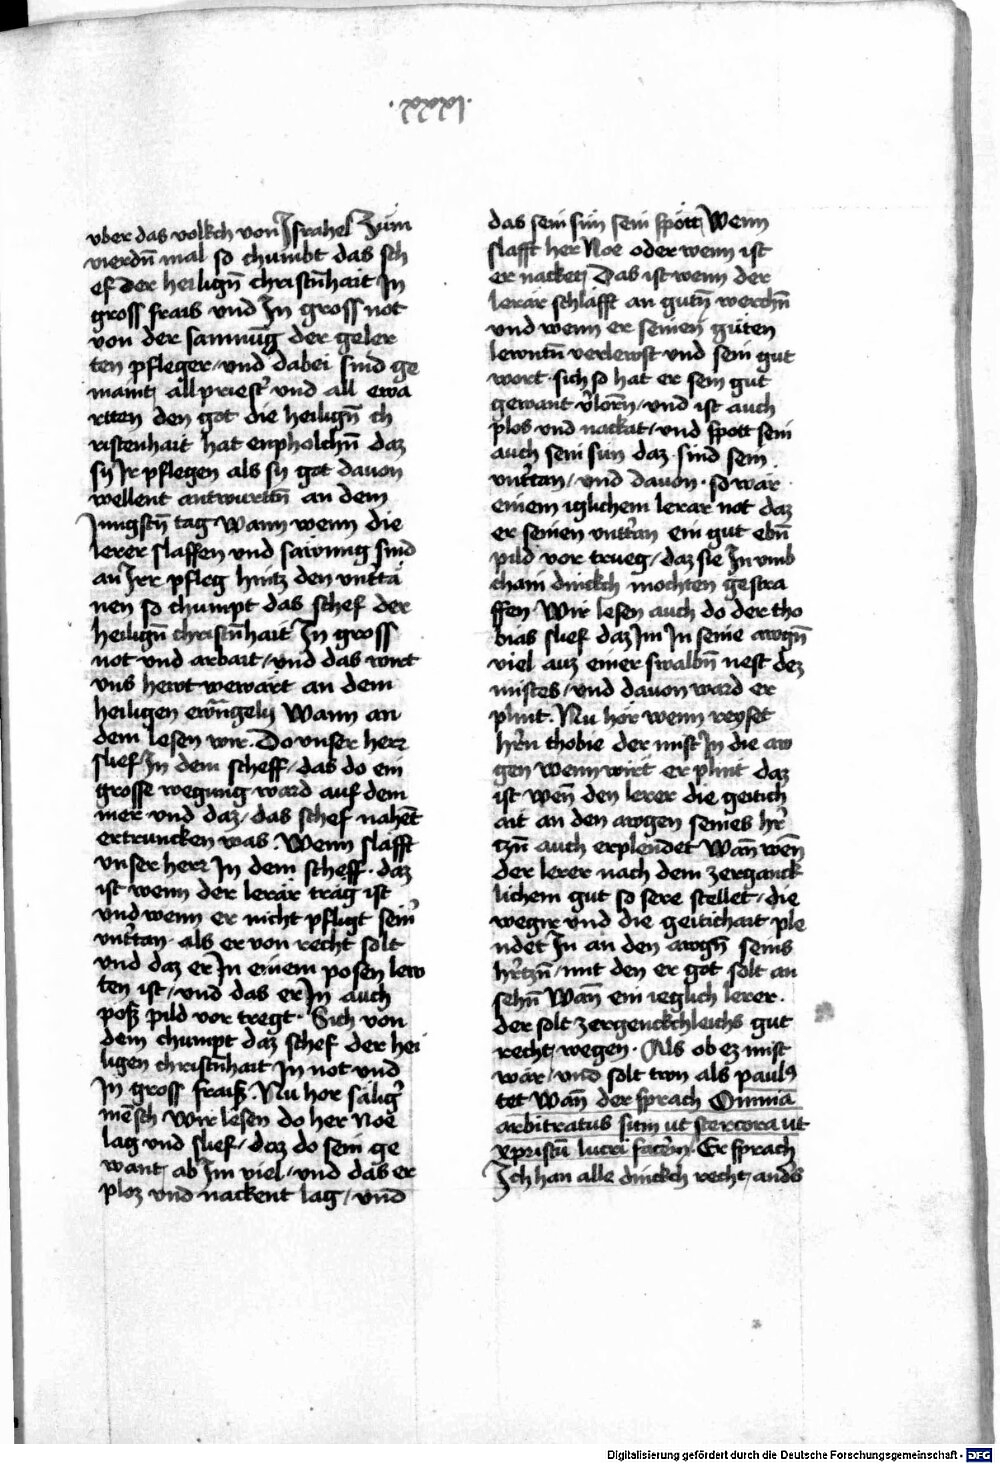 .lxxxx.
vber das volkch von Israhel Zum
vierdn̄ mal so chumbt das sch
ef der heilign̄ christn̄hait In
gross frais vnd In gross not
von der samnūg der geler
ten pfleger / vnd dabei sind ge
maint all priest̉ vnd all ewa
rtten den got die heilign̄ ch
ristenhait hat enpholchn̄ daz
sy Ir pflegen als sy got dauon
wellent antwurttn̄ an dem
Jungstn̄ tag Wann wenn die
lerer slaffen vnd sawmig sind
an Irr pfleg hintz den vnttä
nen so chumpt das schef der
heilign̄ christn̄hait In gross
not vnd arbait / vnd das wirt
vns hewt wewärt an dem
heiligen ewāngely Wann an
dem lesen wir. Do vnser herr
slief In dem scheff / das do ein
grosse wegung ward auf dem
mer vnd daz / das schef nahet
ertruncken was. Wenn slafft
vnser herr In dem scheff. daz
ist wenn der lerär träg ist
vnd wenn er nicht pfligt sein̉
vnt̉tan. als er von recht solt
vnd daz er In einem posen lew
ten ist / vnd das er In auch
poß pild vor tregt. Sich von
dem chumpt daz schef der hei
ligen christn̄hait In not vnd
In gross fraiß. Nu hor sälig̉
mēsch wir lesen do her Noe
lag vnd slief / daz do sein ge
want ab Im viel / vnd das er
ploz vnd nackent lag / vnd
das sein sun sein spott Wenn
slafft her Noe oder wenn ist
er nacket Das ist wenn der
lerär schlafft an gutn̄ werchn̄
vnd wenn er seinen güten
lewntn̄ verlewst vnd sein gut
wort. sich so hat er sein gut
gewant v̉lorn̄ / vnd ist auch
plos vnd nackat / vnd spott sein
auch sein sun daz. sind sein
vnt̉tan / vnd dauon. so wär
einem iglichem lerär not daz
er seinen vnt̉tan ein gut ebn̄
pild vor trueg / daz sie In vmb
chain dinckch mochten gestra
ffen. Wir lesen auch do der tho
bias slief daz Im In seine awgn̄
viel auz einer swalbn̄ nest dez
mistes / vnd dauon ward er
plint. Nu hör wenn reyset
hr̄n thobie der mist In die aw
gen wenn wirt er plint daz
ist wen̄ den lerer die geitich
ait an den awgen seines hr̉
tzn̄ auch erplendet Wan̄ wen̄
der lerer nach dem zerganck
lichem gut so sere stellet / die
wegir vnd die geitichait ple
ndet In an den awgn̄ seins
hr̉tzn̄ / mit den er got solt an
sehn̄ Wan̄ ein ieglich lerer.
der solt zergenckchleichs gut
recht wegen. Als ob ez mist
wär / vnd solt tun als pauls
tet Wan̄ der sprach Omnia
arbitratus sum ut stercora ut
xpristū lucri facerem. Er sprach
Ich han alle dinckch recht and̉s